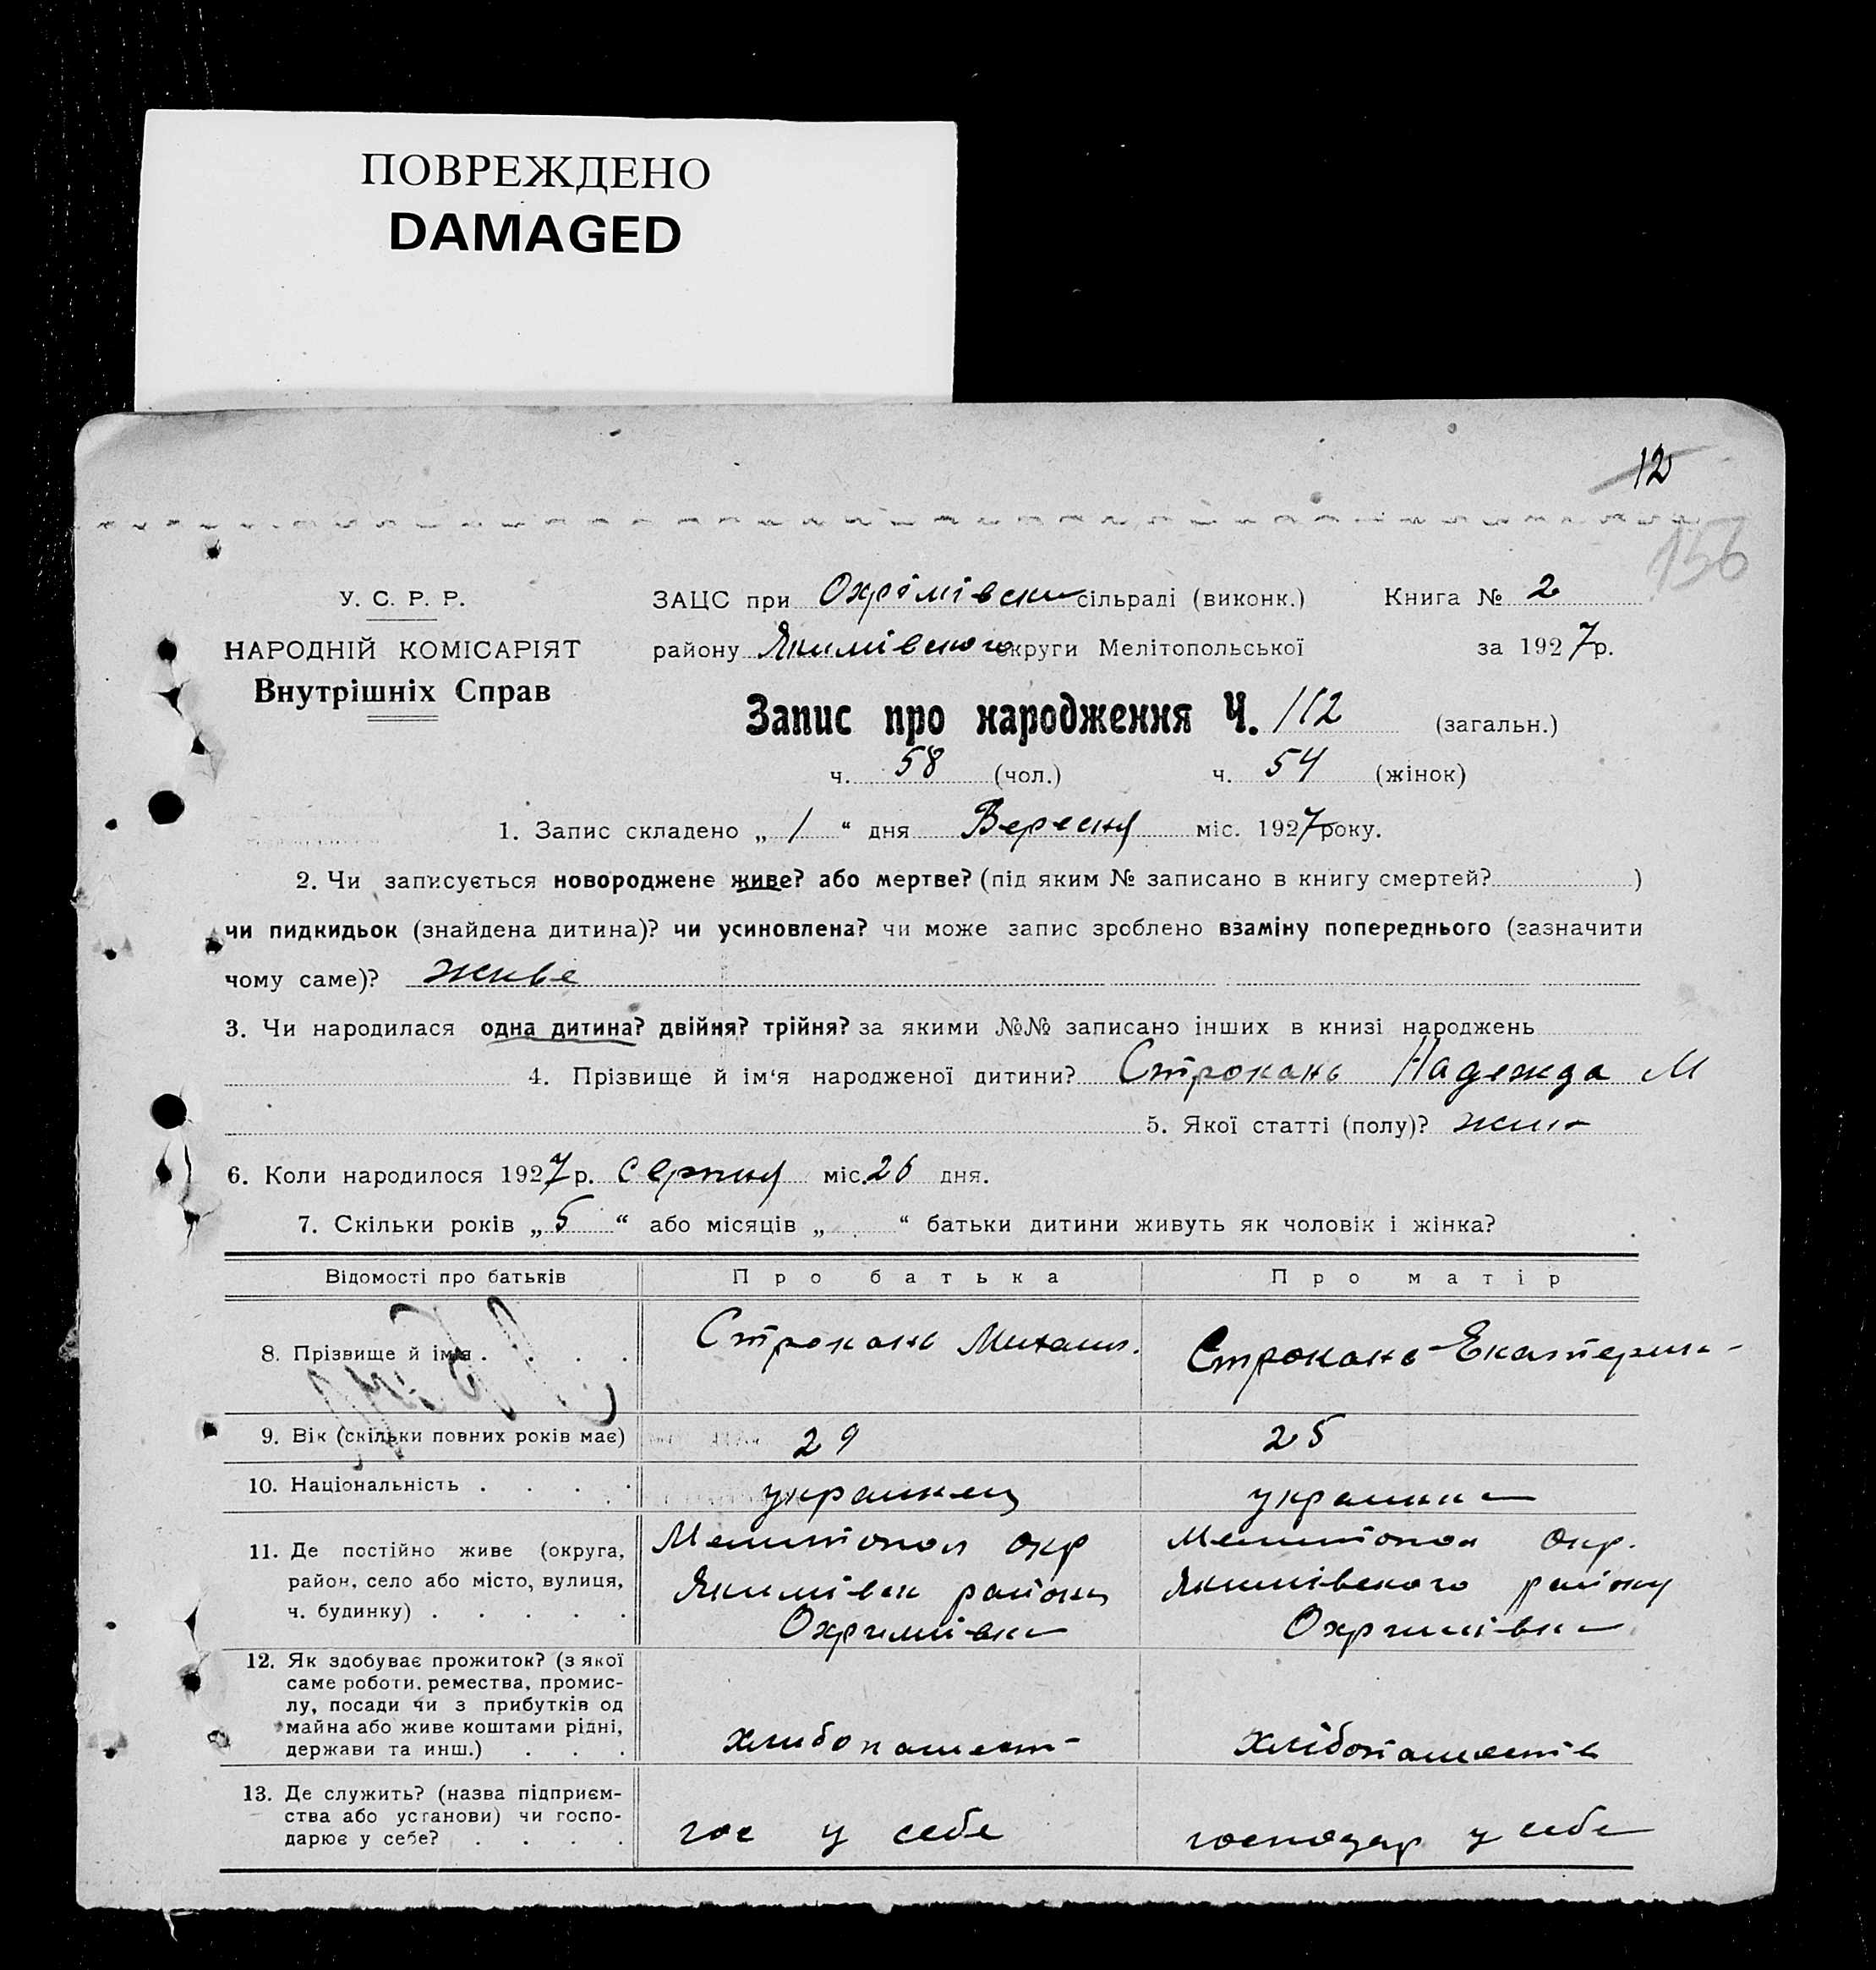 ПОВРЕЖДЕНО
DAMAGED
12
156
У. С. Р. Р.
НАРОДНІЙ КОМІСАРІЯТ
Внутрішніх Справ
ЗАЦС при Охрімівськ сільраді (виконк.) Книга № 2
району Якимівського округи Мелітопольської за 1927 р.
Запис про народження Ч. 112 (загальн.)
ч. 58 (чол.) ч. 54 (жінок)
1. Запис складено „ 1 “ дня Вересня міс. 1927 року.
2. Чи записується новороджене живе? або мертве? (під яким № записано в книгу смертей? )
чи пидкидьок (знайдена дитина)? чи усиновлена? чи може запис зроблено взаміну попереднього (зазначити
чому саме)? живе
3. Чи народилася одна дитина? двійня? трійня? за якими №№ записано інших в книзі народжень
4. Прізвище й ім‘я народженої дитини? Строкань Надежда М
5. Якої статті (полу)? жин
6. Коли народилося 1927 р. серпня міс. 26 дня.
7. Скільки років „ 5 “ або місяців „ “ батьки дитини живуть як чоловік і жінка?
Відомості про батьків Про батька Про матір
8. Прізвище й ім‘я . . . . Строкань Михаил. Строкань Екатерин
9. Вік (скільки повних років має) 29 25
10. Національність . . . . украинец украинка
11. Де постійно живе (округа,
район, село або місто, вулиця,
ч. будинку) . . . . .
Мелитопол окр
Якимівск району
Охримівка
Мелитопол окр.
Якимівского району
Охримівка
12. Як здобуває прожиток? (з якої
саме роботи, ремества, промис-
лу, посади чи з прибутків од
майна або живе коштами рідні,
держави та инш.) . . .
хлибопашест
хлібопашеств
13. Де служить? (назва підприєм-
ства або установи) чи госпо-
дарює у себе? . . . .
гос у себе
господар у себе